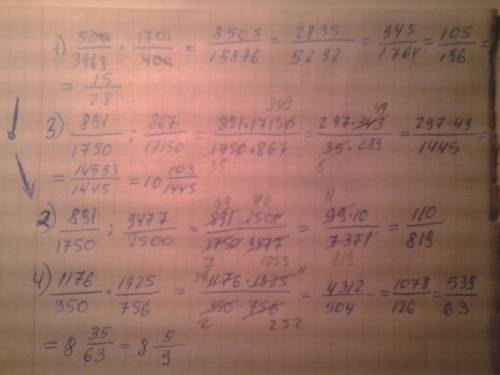 1) 500/3969 · 1701/400 = 8505/15876 = 2835/5292 = 945/1764 = 105/196 =
= 15/28
3) 891/1750 : 867/17150 = 891·17150/1750·867 = 297·343/35·289 = 297·49/1445 =
= 14553/1445 = 10 103/1445
2) 891/1750 : 9477/2500 = = 99·10/7371 = 110/819
4) 1176/350 · 1925/756 = 1176·1925/350·756 = 4312/504 = 1078/126 = 539/63
= 8 35/63 = 8 5/9